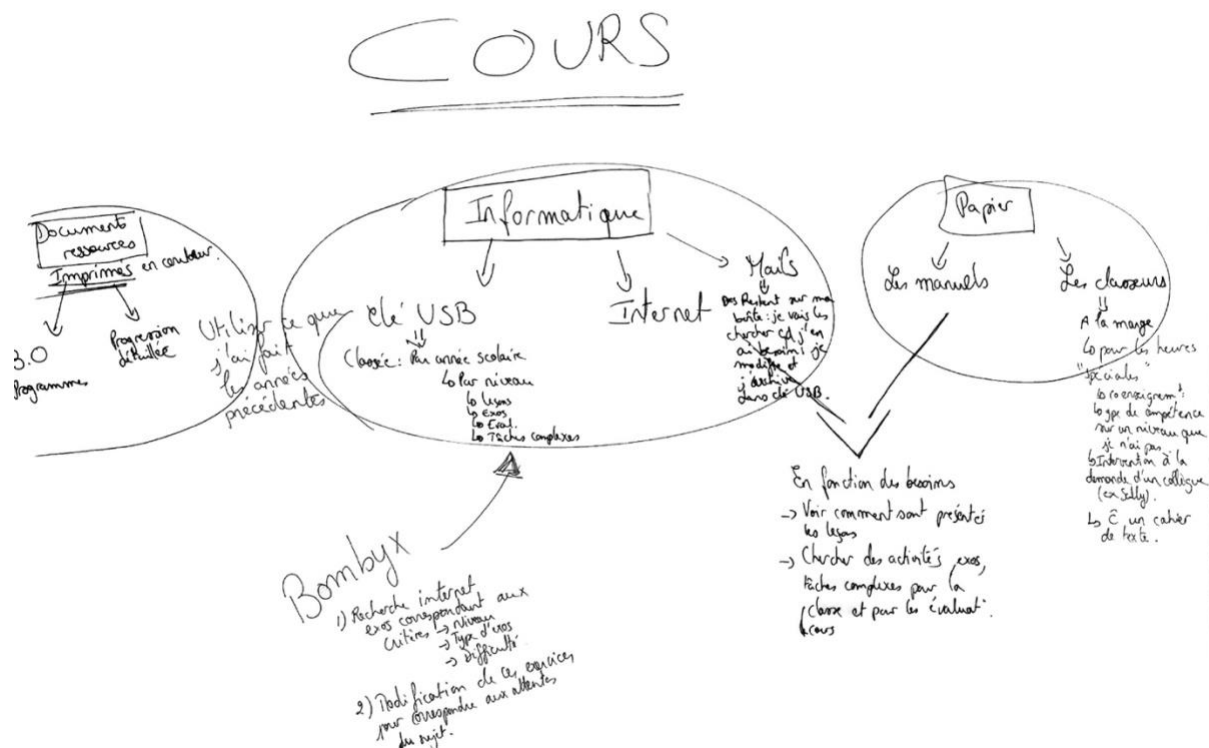 COURS
Document
ressources
Imprimés en couleur.
B.O
Programmes
Progression
détaillée
Utiliser ce que
j'ai fait
les années
précédentes
Informatique
clé USB
Classée : Par année scolaire
↳ Par niveau
↳ leçons
↳ Exos
↳ Eval.
↳ Tâches complexes
Internet
Mails
Restent sur ma
boîte : je vais les
chercher si j'en
ai besoin : je
modifie et
j'archive
dans clé USB.
Papier
Les manuels
Les classeurs
A la marge
↳ pour les heures
"spéciales"
↳ co enseignemt
↳ type de compétence
sur un niveau que
je n'ai pas
↳ Intervention à la
demande d'un collègue
(ex
↳ un cahier
de texte.
En fonction des besoins
→ Voir comment sont présentés
les leçons
→ Chercher des activités, exos,
tâches complexes pour la
classe et pour les évaluat°.
cours
Bombyx
1) Recherche internet
exos correspondant aux
critères → Niveau
→ Type d'exos
→ Difficulté
2) Modification de ces exercices
pour correspondre aux attentes
du sujet.